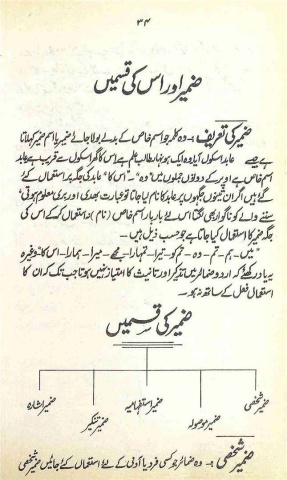 ۳۴
ضمیر اور اس کی قسمیں
ضمیر کی تعریف :- وہ کلمہ جو اسم خاص کے بدلے بولا جائے ضمیر یا اسم ضمیر کہلاتا
ہے جیسے عابد اسکول آیا وہ ایک ہونہار طالب علم ہے اس کا گھر اسکول سے قریب ہے عابد
اسم خاص ہے اوپر کے دونوں جملوں میں "وہ"۔ "اس کا" عابد کی جگہ پر استعمال کئے
گئے ہیں اگر ان تینوں جگہوں پر عابد کا نام لیا جاتا تو عبارت بھدی اور بری معلوم ہوتی
سننے والے کو ناگوار بھی لگتا اس لئے بار بار اسم خاص (نام) استعمال کرنے کے اس کی
جگہ ضمیر کا استعمال کیا جاتا ہے جو حسب ذیل ہیں۔
"میں۔ ہم۔ تم۔ وہ۔ تم کو۔ تیرا۔ تمہارا۔ مجھے۔ میرا۔ ہمارا۔ اس کا" وغیرہ
یہ یاد رکھئے کہ اردو ضمائر میں تذکیر اور تانیث کا امتیاز نہیں ہوتا جب تک کہ ان کا
استعمال فعل کے ساتھ نہ ہو۔
ضمیر کی قسمیں
ضمیر شخصی ضمیر موصولہ ضمیر استفہامیہ ضمیر تنکیر ضمیر اشارہ
ضمیر شخصی :- وہ ضمائر جو کسی فرد یا آدمی کے لئے استعمال کئے جائیں ضمیر شخصی